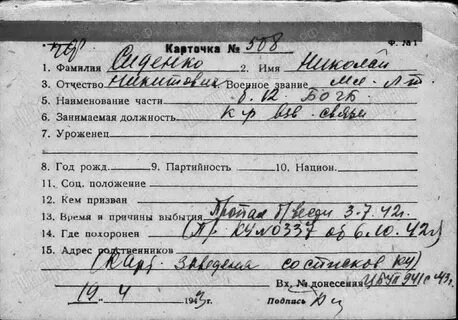 Карточка № 508
Ф. №1
1. Фамилия Сиденко 2. Имя Николай
3. Отчество Никитович Военное звание Мл. Л-т
5. Наименование части 12
6. Занимаемая должность к-р взв. связи
7. Уроженец
8. Год рожд. 9. Партийность 10. Национ.
11. Соц. положение
12. Кем призван
13. Время и причины выбытия Пропал б/вести 3-7.42г.
14. Где похоронен (Пр. КЧ №0337 от 6.10.42г)
15. Адрес родственников
(Карт. заведена со списков КЧ)
Вх. № донесения
19 4 1943г. Подпись